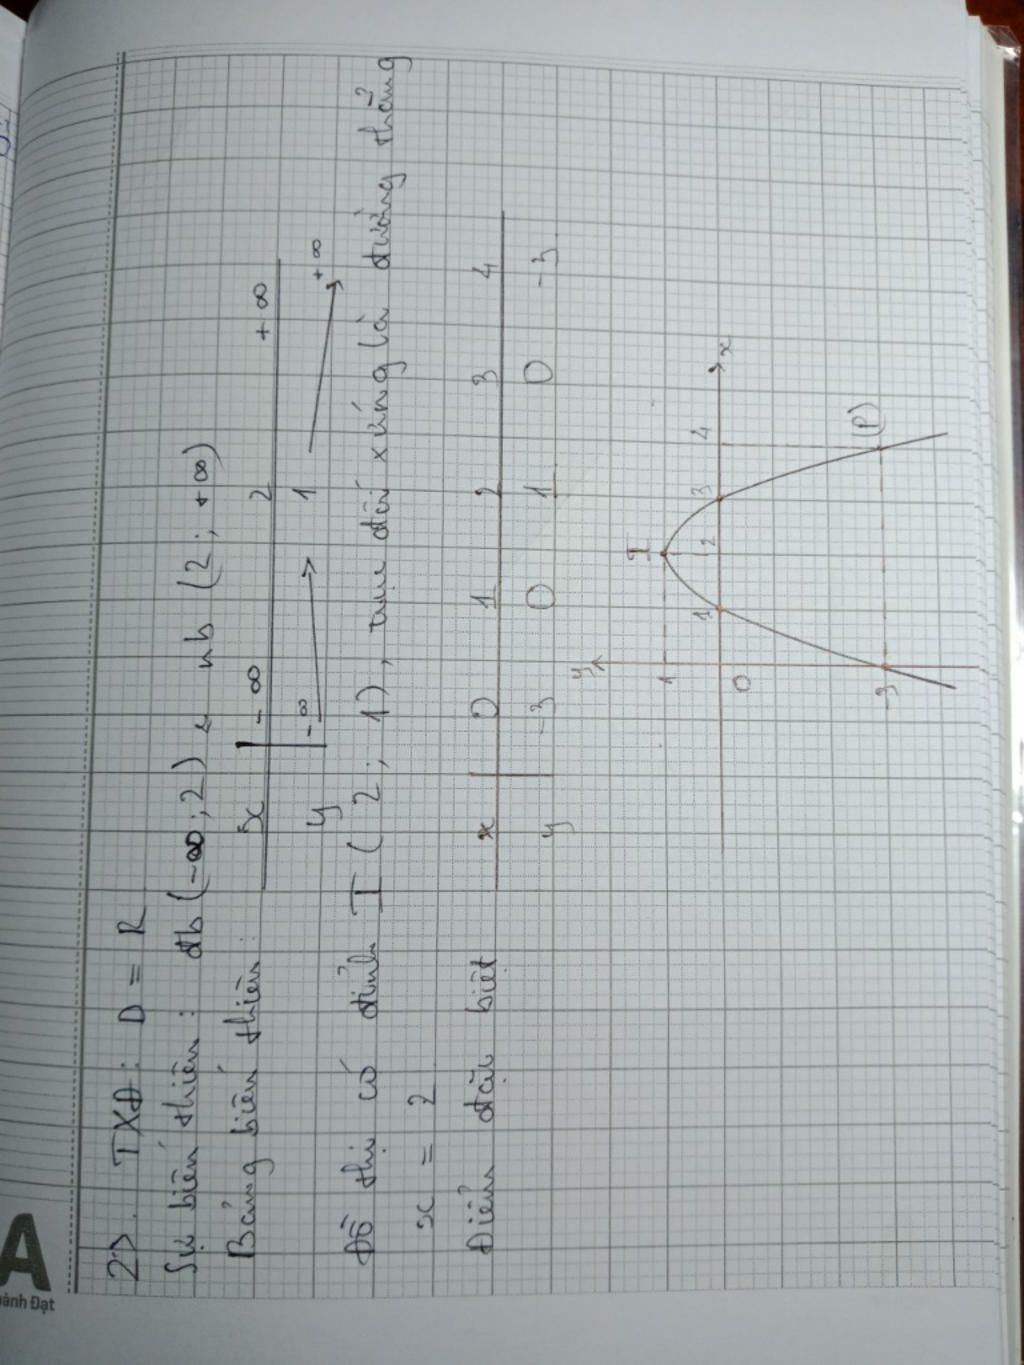 2). TXĐ: D = R
Sự biến thiên: đb (-∞; 2) nb (2; +∞)
Bảng biến thiên:
x -∞ 2 +∞
y -∞ 1 +∞
Đồ thị có đỉnh I (2; 1), trục đối xứng là đường thẳng
x = 2
Điểm đặc biệt
x 0 1 2 3 4
y -3 0 1 0 -3
y
I
1
1 2 3 4 x
O
-3
(P)
A
ành Đạt